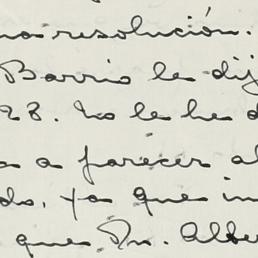 na resolución.
Barrio le dij
28. No le he d
a a parecer al
do, ya que in
que Dn. Albe